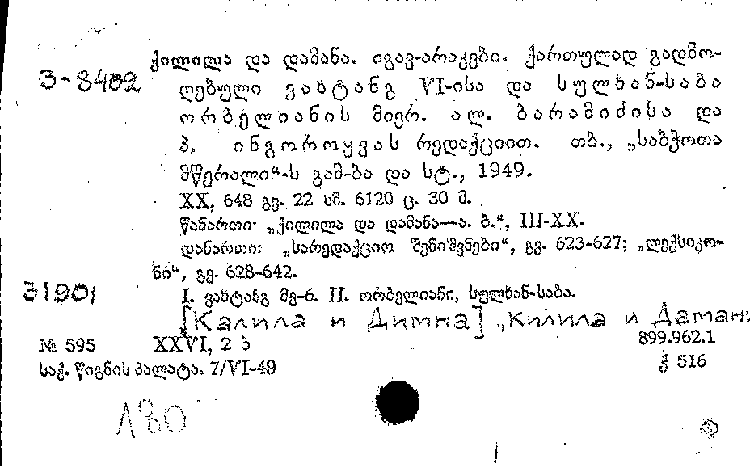 ქილილა და დამანა. იგავ-არაკები. ქართულად გადმო-
3-8402
ღებული ვახტანგ VI-ისა და სულხან-საბა
ორბელიანის მიერ. ალ. ბარამიძისა და
პ. ინგოროყვას რედაქციით. თბ., „საბჭოთა
მწერალი“-ს გამ-ბა და სტ., 1949.
XX, 648 გვ. 22 სმ. 6120 ც. 30 მ.
წანართი: „ქილილა და დამანა—ა. ბ.“, III-XX.
დანართი: „სარედაქციო შენიშვნები“, გვ. 623-627; „ლექსიკო-
ნი“, გვ. 628-642.
31901
I. ვახტანგ მე-6. II. ორბელიანი, სულხან-საბა.
[Калила и Димна] „Килила и Даман.
№ 595 XXVI, 2 ა 899.962.1
საქ. წიგნის პალატა. 7/VI-49 ქ 516
180